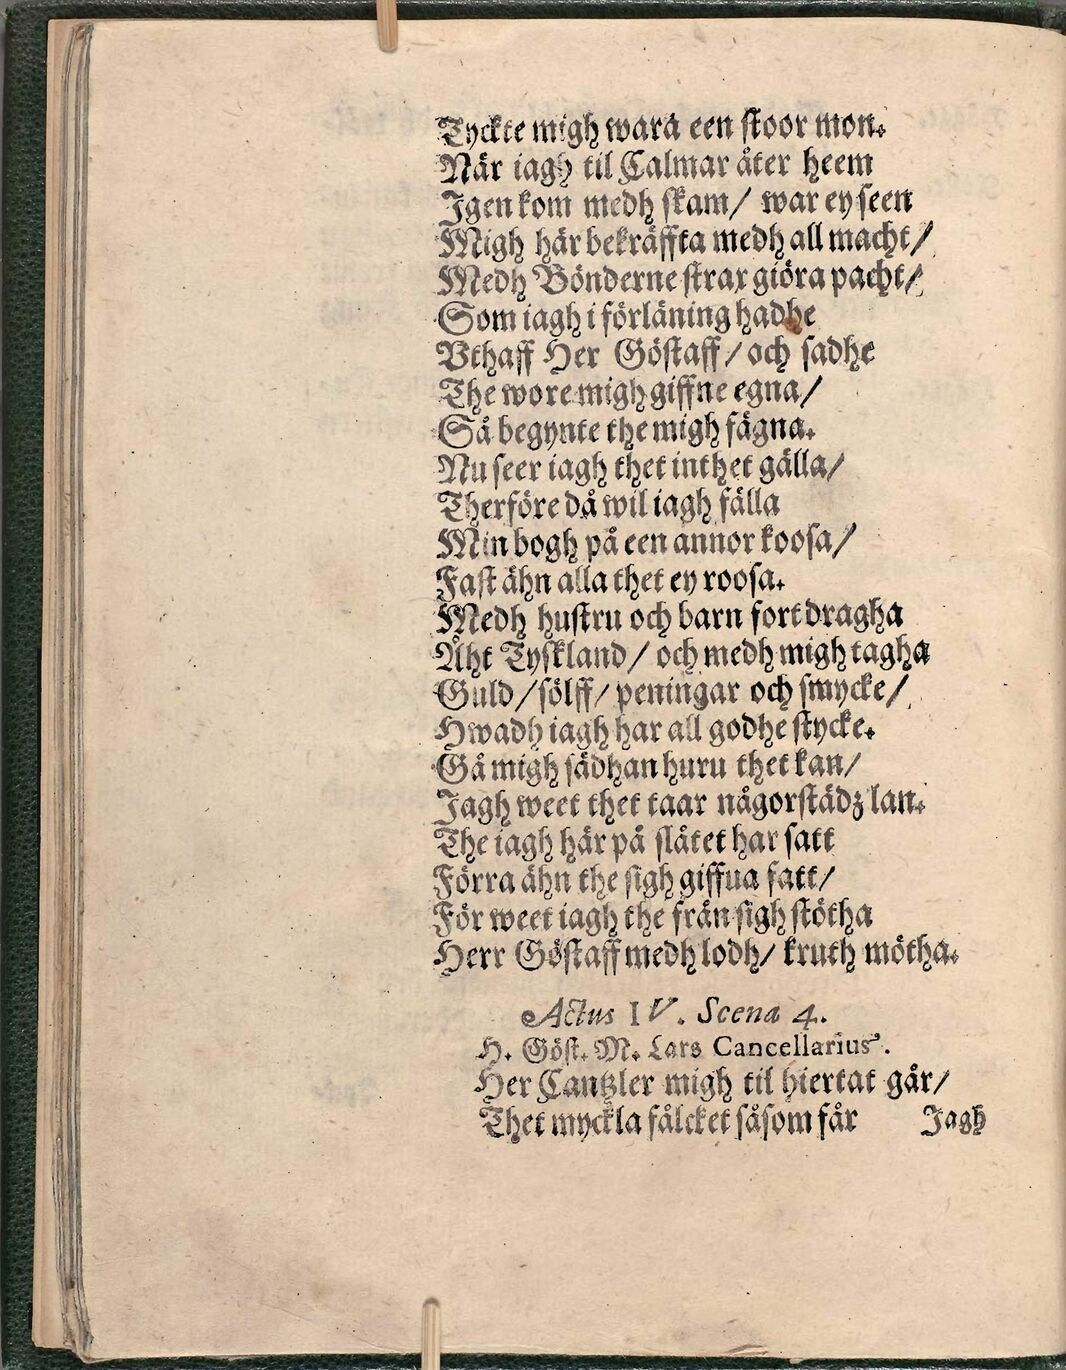 Tyckte migh wara een stoor mon.
När iagh til Calmar åter heem
Igen kom medh skam/ war ey seen
Migh här bekräffta medh all macht/
Medh Bönderne strax giöra pacht/
Som iagh i förläning hadhe
Vthaff Her Göstaff/ och sadhe
The wore migh giffne egna/
Så begynte the migh fägna.
Nu seer iagh thet inthet gälla/
Therföre då wil iagh fälla
Min bogh på een annor koosa/
Fast ähn alla thet ey roosa.
Medh hustru och barn fort dragha
Åht Tyskland/ och medh migh tagha
Guld/ sölff/ peningar och smycke/
Hwadh iagh har all godhe stycke.
Gå migh sädhan huru thet kan/
Jagh weet thet taar någorstädz lan.
The iagh här på slåtet har satt
Förra ähn the sigh giffua fatt/
För weet iagh the från sigh stötha
Herr Göstaff medh lodh/ kruth mötha.
Actus IV. Scena 4.
H. Göst. M. Lars Cancellarius.
Her Cantzler migh til hiertat går/
Thet myckla fålcket såsom får
Jagh